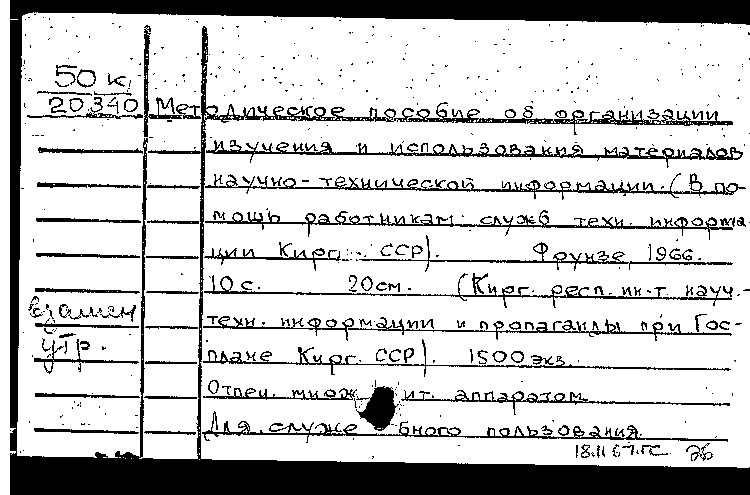 50 к
20340 Методическое пособие об организации
изучения и использования материалов
научно-технической информации. (В по-
мощь работникам служб техн. информа-
ции Кирг. ССР). Фрунзе, 1966.
10 с. 20 см. (Кирг. респ. ин-т науч.-
взамен
техн. информации и пропаганды при Гос-
утр.
плане Кирг. ССР). 1500 экз.
Отпеч. множ ит. аппаратом
Для служе бного пользования
18.II 67.